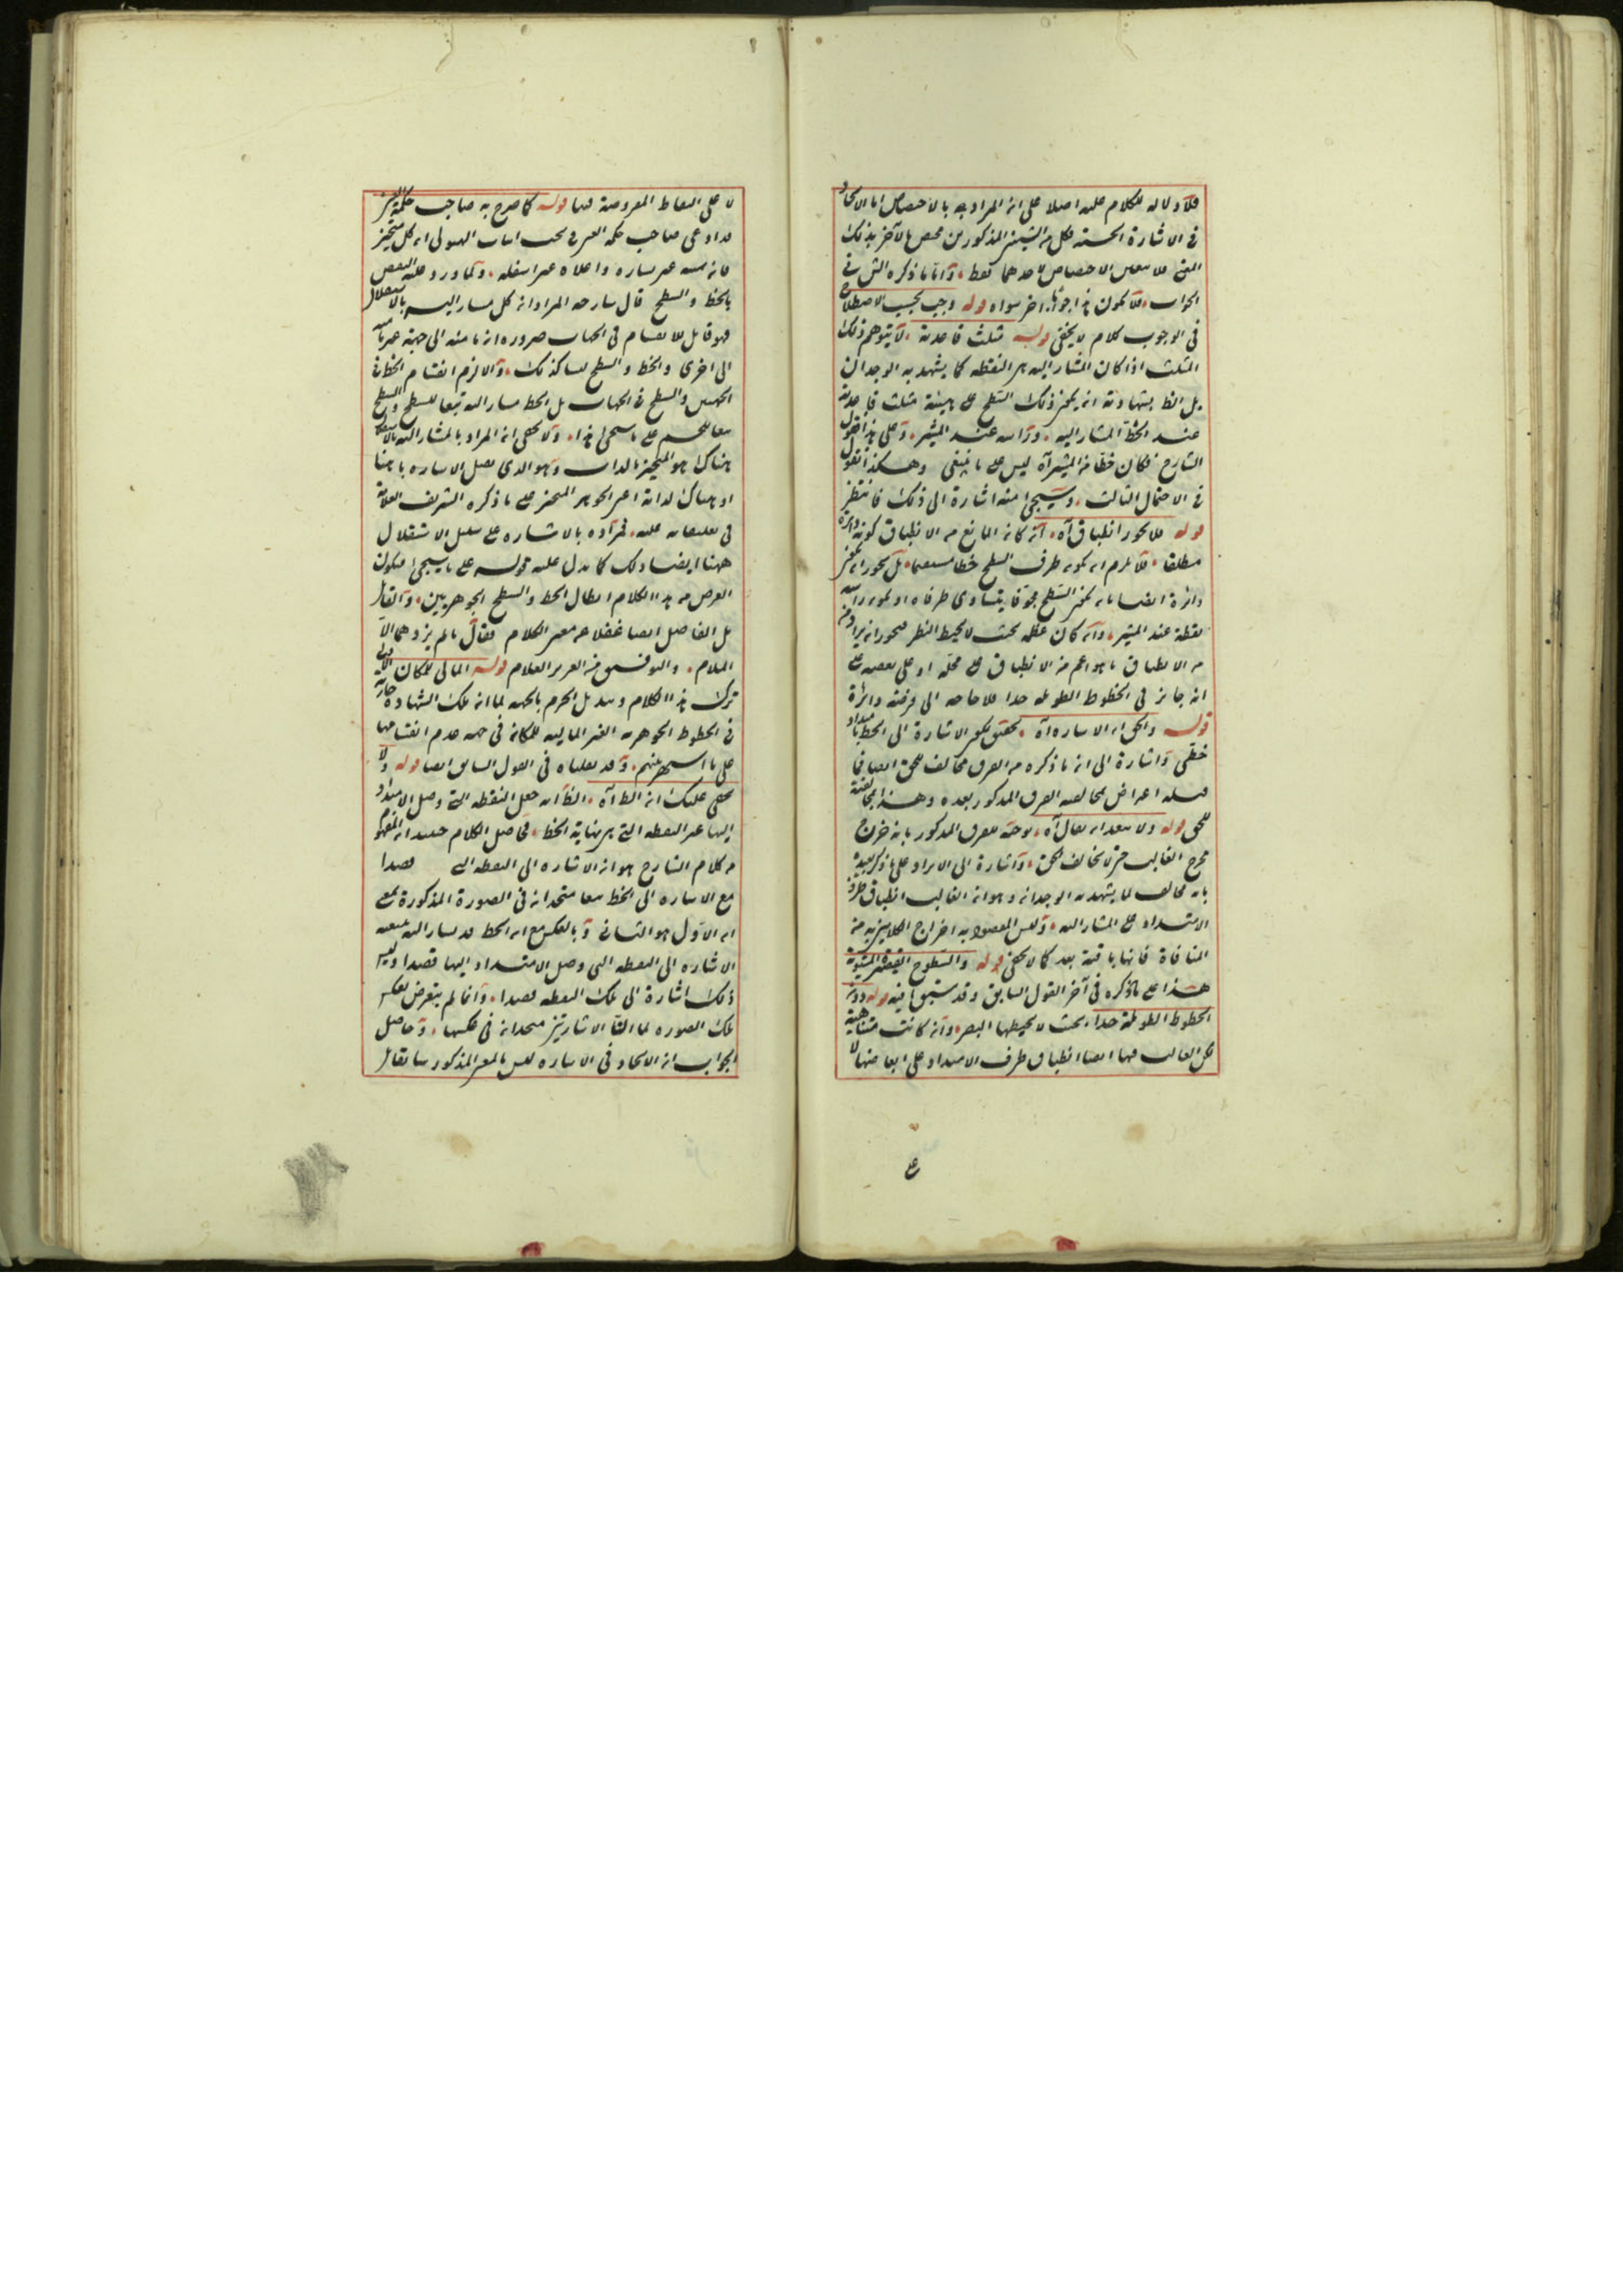 فلا دلالة للكلام عليه اصلا على ان المراد به بالاختصاص اما الاتحاد
في الاشارة الحسية فكل من الشيئين المذكورين مختص بالآخر بذلك
المعنى فلا معنى لاختصاص لاحدهما فقط وانا ما ذكره الش في
الجواب فلا يكون هذا جوابا آخر سواه قوله وجب بحسب الاصطلاح
في الوجوب كلام لا يخفى قوله مثلث قاعدته لا يتوهم ذلك
المثلث اذا كان المشار اليه هي النقطة كما يشهد به الوجدان
بل الظ بشهادته انه يكون ذلك السطح على هيئة مثلث قاعدته
عند الخط المشار اليه وراسه عند المشير وعلى هذا قول
الشارح فكان خطا من المشير آه ليس على ما ينبغي وهكذا نقول
في الاحتمال الثالث وسيجئ منه اشارة الى ذلك فانتظر
قوله فلا يجوز انطباق آه ان كان المانع من الانطباق كونه دائرة
مطلقا فلا يلزم ان يكون طرف السطح خطا مستقيما بل يجوز ان يكون
دائرة ايضا بان يكون السطح مجوفا يتساوى طرفاه او يكون راسه
نقطة عند المشير وان كان عظمه بحيث لا يحيط النظر فيجوز ان يراد
من الانطباق ما هو اعم من الانطباق على محله او على بعضه على
انه جائز في الخطوط الطويلة جدا فلا حاجة الى فرضه دائرة
قوله والحق ان الاشارة آه تحقيق لكون الاشارة الى الخط بامتداد
خطي واشارة الى ان ما ذكره من الفرق مخالف للحق ايضا فما
قبله اعتراض لمخالفة الفرق المذكور بعده وهذا لمخالفته
للحق قوله ولا يبعد ان يقال آه توجيه للفرق المذكور بانه خرج
مخرج الغالب حتى لا يخالف الحق واشارة الى الايراد على ما ذكر بعيده
بانه مخالف لما يشهد به الوجدان وهو ان الغالب انطباق طرف
الامتداد على المشار اليه وليس المقصود به اخراج الكلامين من
المنافاة فانها باقية بعد كما لا يخفى قوله والسطوح المستوية
هذا على ما ذكره في آخر القول السابق وقد سبق ما فيه قوله دون
الخطوط الطويلة جدا بحيث لا يحيطها البصر وان كانت متناهية
لكن الغالب فيها ايضا انطباق طرف الامتداد على ابعاضها لا
ع
لا على النقاط المفروضة فيها قوله كما صرح به صاحب حكمة العين
قد ادعى صاحب حكمة العين في بحث اثبات الهيولى ان كل متحيز
فان يمينه غير يساره واعلاه غير اسفله ولما ورد عليه النقض
بالخط والسطح قال شارحه المراد ان كل مشار اليه بالاستقلال
فهو قابل للانقسام في الجهات ضرورة ان ما منه الى جهة غير ما منه
الى اخرى والخط والسطح ليسا كذلك والا لزم انقسام الخط في
الجهتين والسطح في الجهات بل الخط مشار اليه تبعا للسطح والسطح
تبعا للجسم على ما سيجئ هذا ولا يخفى ان المراد بالمشار اليه بالاستقلال
هناك هو المتحيز بالذات وهو الذي يقبل الاشارة بانه هنا
او هناك لذاته اعني الجوهر المتحيز على ما ذكره الشريف العلامة
في تعليقاته عليه فمراده بالاشارة على سبيل الاستقلال
ههنا ايضا ذلك كما يدل عليه قوله على ما سيجئ فيكون
الغرض من هذا الكلام ابطال الخط والسطح الجوهريين والقائل
بل الفاضل ايضا غفلا عن معنى الكلام فقال ما لم يزدهما الا
الملام والتوفيق من العزيز العلام قوله المالي للمكان الاولى
ترك هذا الكلام وتبديل الجرم بالجهة لما ان تلك الشهادة جارية
في الخطوط الجوهرية الغير المالية للمكان في جهة عدم انقسامها
على ما اشتهر منهم وقد نقلناه في القول السابق ايضا قوله ولا
يخفى عليك ان الظ آه الظ انه جعل النقطة التي وصل الامتداد
اليها غير النقطة التي هي نهاية الخط فحاصل الكلام حينئذ ان المفهوم
من كلام الشارح هو ان الاشارة الى النقطة التي قصدا
مع الاشارة الى الخط تبعا متحدان في الصورة المذكورة بمعنى
ان الاول هو الثاني وبالعكس مع ان الخط قد يشار اليه بتبعية
الاشارة الى النقطة التي وصل الامتداد اليها قصدا وليس
ذلك اشارة الى تلك النقطة قصدا وانما لم يتعرض لعكس
تلك الصورة لما الفا الاشارتين متحدان في عكسها وحاصل
الجواب ان الاتحاد في الاشارة ليس بالمعنى المذكور سابقا